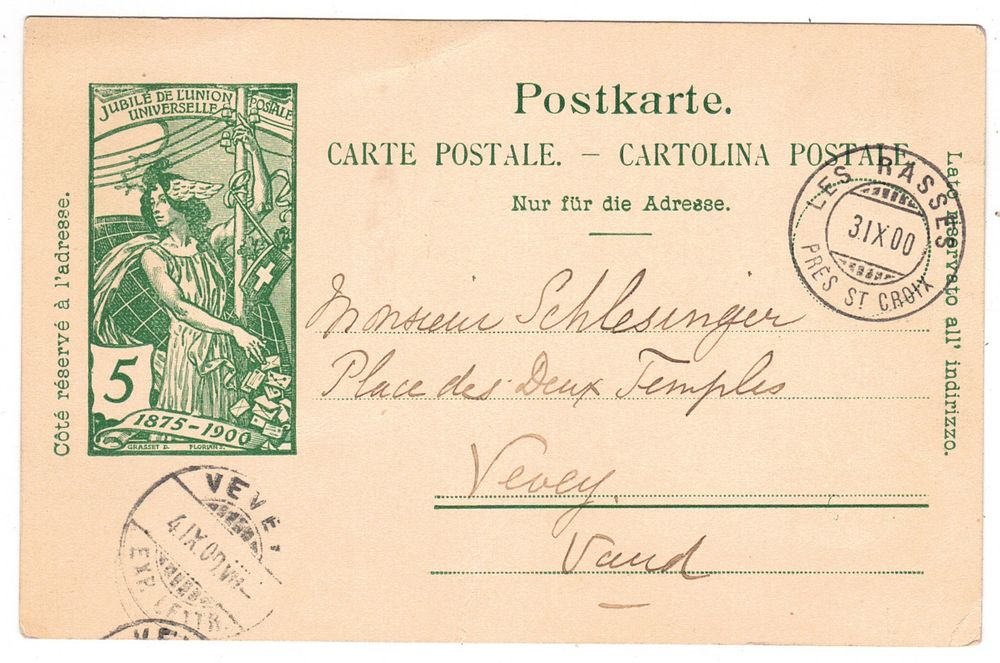 JUBILÉ DE L'UNION
POSTALE
UNIVERSELLE
5
1875-1900
GRASSET D. FLORIAN S.
Côté réservé à l'adresse.
Postkarte.
CARTE POSTALE. — CARTOLINA POSTALE.
Nur für die Adresse.
Lato riservato all' indirizzo.
LES RASSES
3.IX 00
PRÈS ST CROIX
Monsieur Schlesinger
Place des Deux Temples
Vevey.
Vaud
VEVEY
4.IX.00.VII-
EXP. LETTR.
VEV